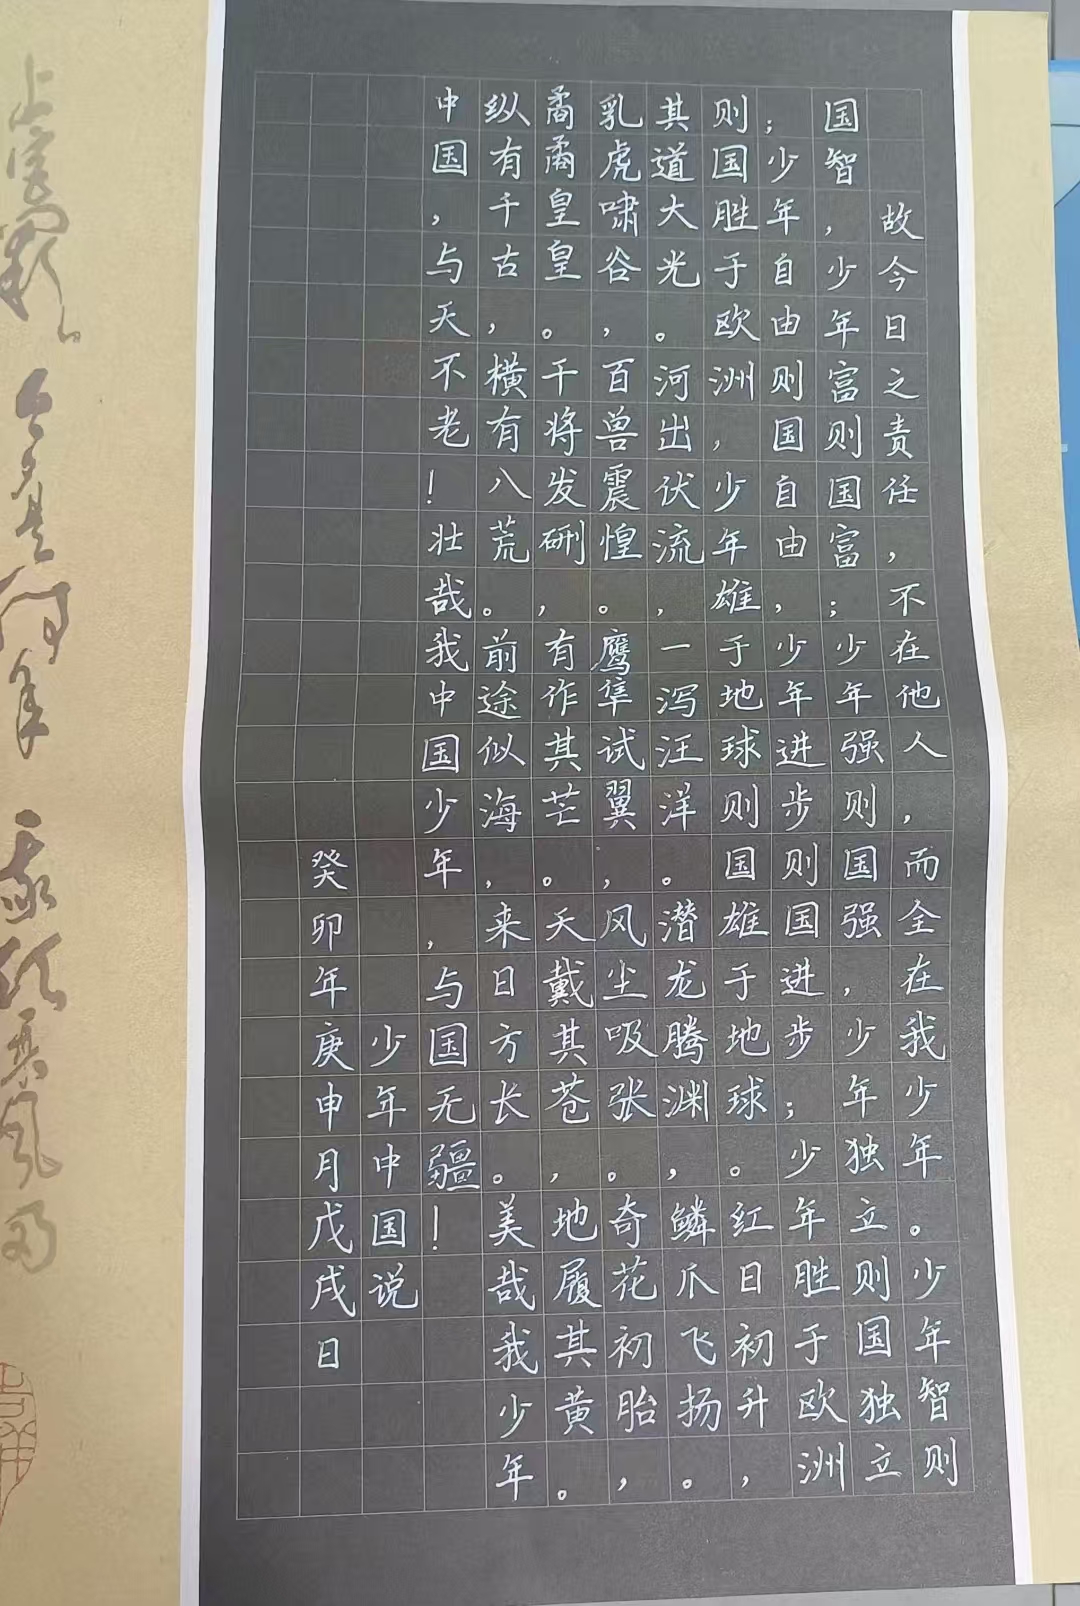 故今日之责任，不在他人，而全在我少年。少年智则
国智，少年富则国富；少年强则国强，少年独立则国独立
；少年自由则国自由，少年进步则国进步；少年胜于欧洲
则国胜于欧洲，少年雄于地球则国雄于地球。红日初升，
其道大光。河出伏流，一泻汪洋。潜龙腾渊，鳞爪飞扬。
乳虎啸谷，百兽震惶。鹰隼试翼，风尘吸张。奇花初胎，
矞矞皇皇。干将发硎，有作其芒。天戴其苍，地履其黄。
纵有千古，横有八荒。前途似海，来日方长。美哉我少年
中国，与天不老！壮哉我中国少年，与国无疆！
少年中国说
癸卯年庚申月戊戌日